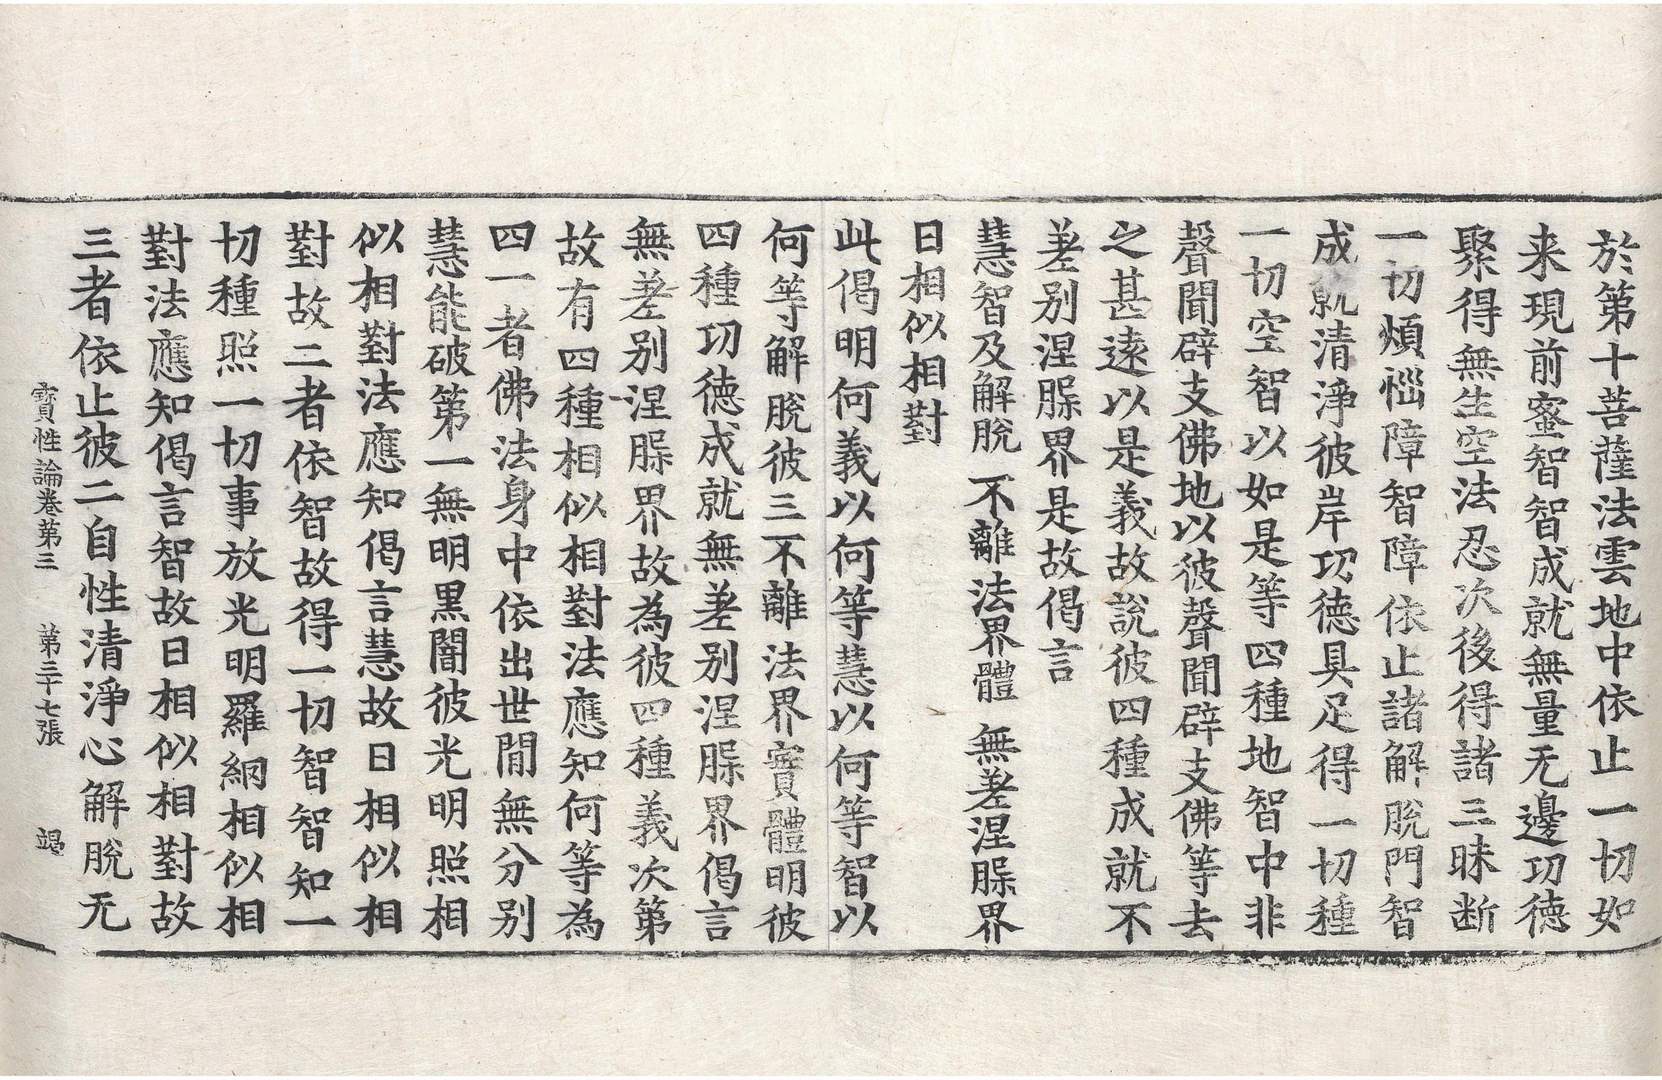 於第十菩薩法雲地中依止一切如
来現前蜜智智成就無量无邊功德
聚得無生空法忍次後得諸三昧断
一切煩惱障智障依止諸解脫門智
成就清淨彼岸功德具足得一切種
一切空智以如是等四種地智中非
聲聞辟支佛地以彼聲聞辟支佛等去
之甚遠以是義故說彼四種成就不
差別涅槃界是故偈言
慧智及解脫 不離法界體 無差涅槃界
日相似相對
此偈明何義以何等慧以何等智以
何等解脫彼三不離法界實體明彼
四種功德成就無差别涅槃界偈言
無差别涅槃界故為彼四種義次第
故有四種相似相對法應知何等為
四一者佛法身中依出世間無分别
慧能破第一無明黑闇彼光明照相
似相對法應知偈言慧故日相似相
對故二者依智故得一切智智知一
切種照一切事放光明羅網相似相
對法應知偈言智故日相似相對故
三者依止彼二自性清淨心解脫无
寳性論卷第三 第三十七張 竭